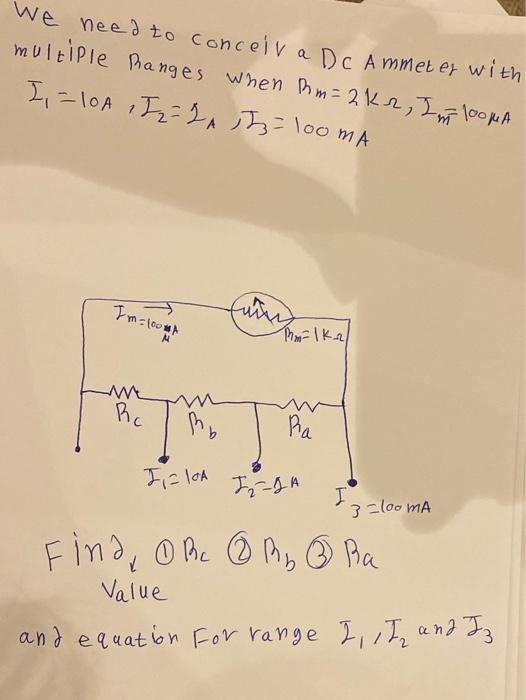 We need to conceiv a DC Ammeter with
multiple Ranges when Rm = 2kΩ, Im = 100μA
I1 = 10A , I2 = 1A , I3 = 100 mA
Im = 100 μA
Rm = 1kΩ
Rc Rb Ra
I1 = 10A I2 = 1A I3 = 100 mA
Find, ① Rc ② Rb ③ Ra
Value
and equation For range I1 , I2 and I3